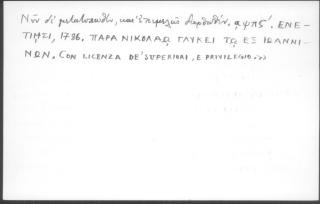 Νῦν δὲ μετατυπωθὲν, καὶ ἐπιμελῶς διορθωθὲν. ͵αψπϛ´. ΕΝΕ-
ΤΙΗΣΙ, 1786. ΠΑΡΑ ΝΙΚΟΛΑῼ ΓΛΥΚΕΙ Τῼ ΕΞ ΙΩΑΝΝΙ-
ΝΩΝ. CON LICENZA DE' SUPERIORI, E PRIVILEGIO.>>